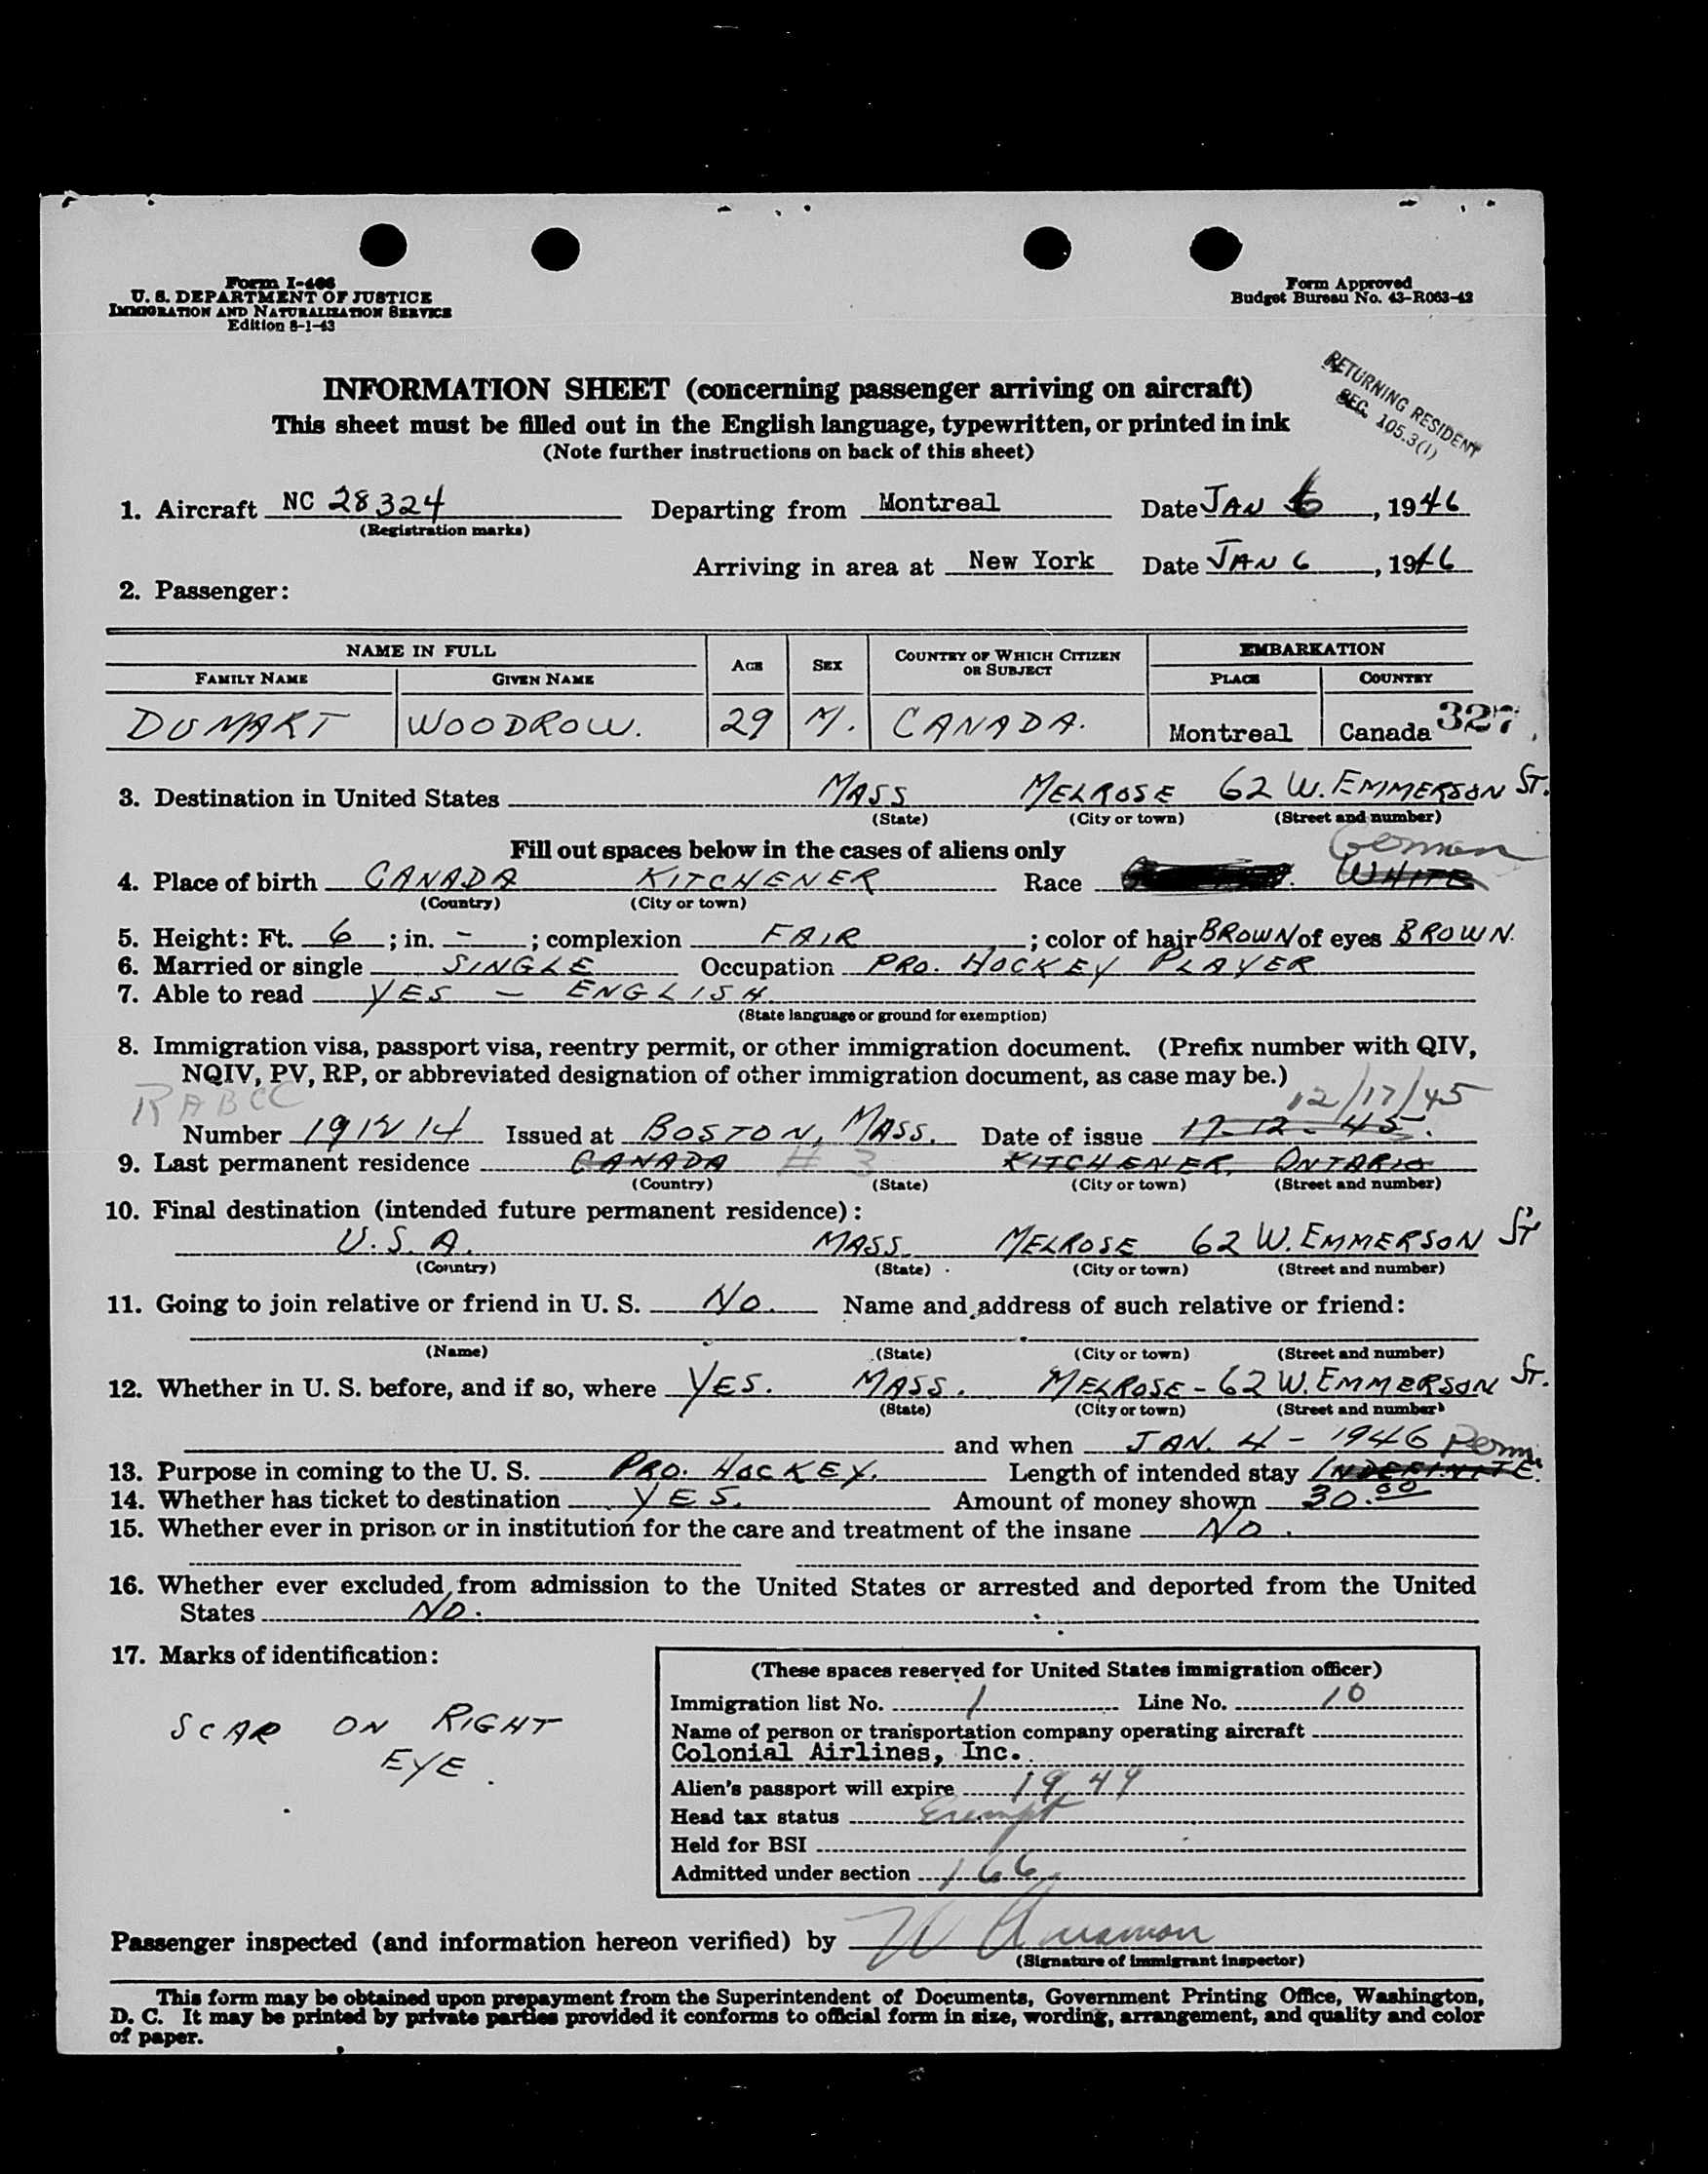 Form I-466
U. S. DEPARTMENT OF JUSTICE
IMMIGRATION AND NATURALIZATION SERVICE
Edition 8-1-43
Form Approved
Budget Bureau No. 43-R063-42
RETURNING RESIDENT
SEC. 105.3(1)
INFORMATION SHEET (concerning passenger arriving on aircraft)
This sheet must be filled out in the English language, typewritten, or printed in ink
(Note further instructions on back of this sheet)
1. Aircraft NC 28324 Departing from Montreal Date JAN 6, 1946
(Registration marks)
Arriving in area at New York Date JAN 6, 1946
2. Passenger:
NAME IN FULL AGE SEX COUNTRY OF WHICH CITIZEN OR SUBJECT EMBARKATION
FAMILY NAME GIVEN NAME PLACE COUNTRY
DUMART WOODROW. 29 M. CANADA. Montreal Canada 327
3. Destination in United States MASS MELROSE 62 W. EMMERSON ST.
(State) (City or town) (Street and number)
Fill out spaces below in the cases of aliens only
German
4. Place of birth CANADA KITCHENER Race WHITE
(Country) (City or town)
5. Height: Ft. 6; in. -; complexion FAIR; color of hair BROWN of eyes BROWN.
6. Married or single SINGLE Occupation PRO. HOCKEY PLAYER
7. Able to read YES - ENGLISH
(State language or ground for exemption)
8. Immigration visa, passport visa, reentry permit, or other immigration document. (Prefix number with QIV,
NQIV, PV, RP, or abbreviated designation of other immigration document, as case may be.)
RABCC 12/17/45
Number Issued at BOSTON, MASS. Date of issue 17-12-45.
9. Last permanent residence CANADA # 3 KITCHENER, ONTARIO
(Country) (State) (City or town) (Street and number)
10. Final destination (intended future permanent residence):
U.S.A. MASS. MELROSE 62 W. EMMERSON ST
(Country) (State) (City or town) (Street and number)
11. Going to join relative or friend in U. S. No. Name and address of such relative or friend:
(Name) (State) (City or town) (Street and number)
12. Whether in U. S. before, and if so, where YES. MASS. MELROSE - 62 W. EMMERSON ST.
(State) (City or town) (Street and number)
and when JAN. 4 - 1946 Perm
13. Purpose in coming to the U. S. PRO. HOCKEY. Length of intended stay INDEFINITE.
14. Whether has ticket to destination YES. Amount of money shown 30.00
15. Whether ever in prison or in institution for the care and treatment of the insane No.
16. Whether ever excluded from admission to the United States or arrested and deported from the United
States NO.
17. Marks of identification:
SCAR ON RIGHT
EYE.
(These spaces reserved for United States immigration officer)
Immigration list No. 1 Line No. 10
Name of person or transportation company operating aircraft
Colonial Airlines, Inc.
Alien's passport will expire 1949
Head tax status Exempt
Held for BSI
Admitted under section 166
Passenger inspected (and information hereon verified) by
(Signature of immigrant inspector)
This form may be obtained upon prepayment from the Superintendent of Documents, Government Printing Office, Washington,
D. C. It may be printed by private parties provided it conforms to official form in size, wording, arrangement, and quality and color
of paper.